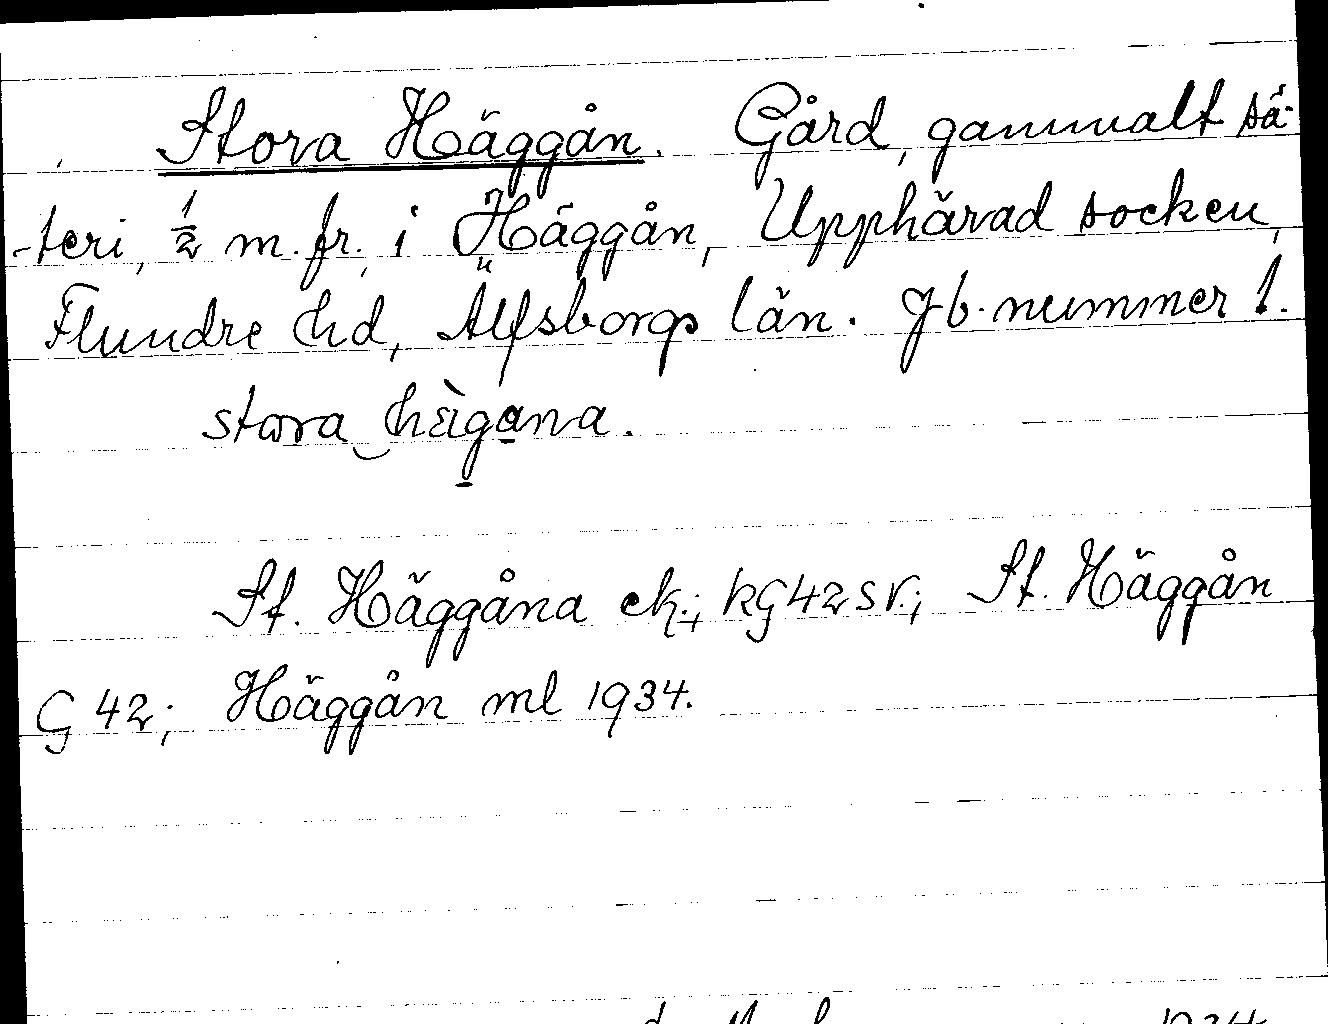 Stora Häggån. Gård, gammalt sä-
teri, ½ m. fr., i Häggån, Upphärad socken,
Flundre hd, Älfsborgs län. Jb. nummer 1.
stora hὲgana.
St. Häggåna ek.; kG42SV.; St. Häggån
G 42; Häggån ml 1934.
1934